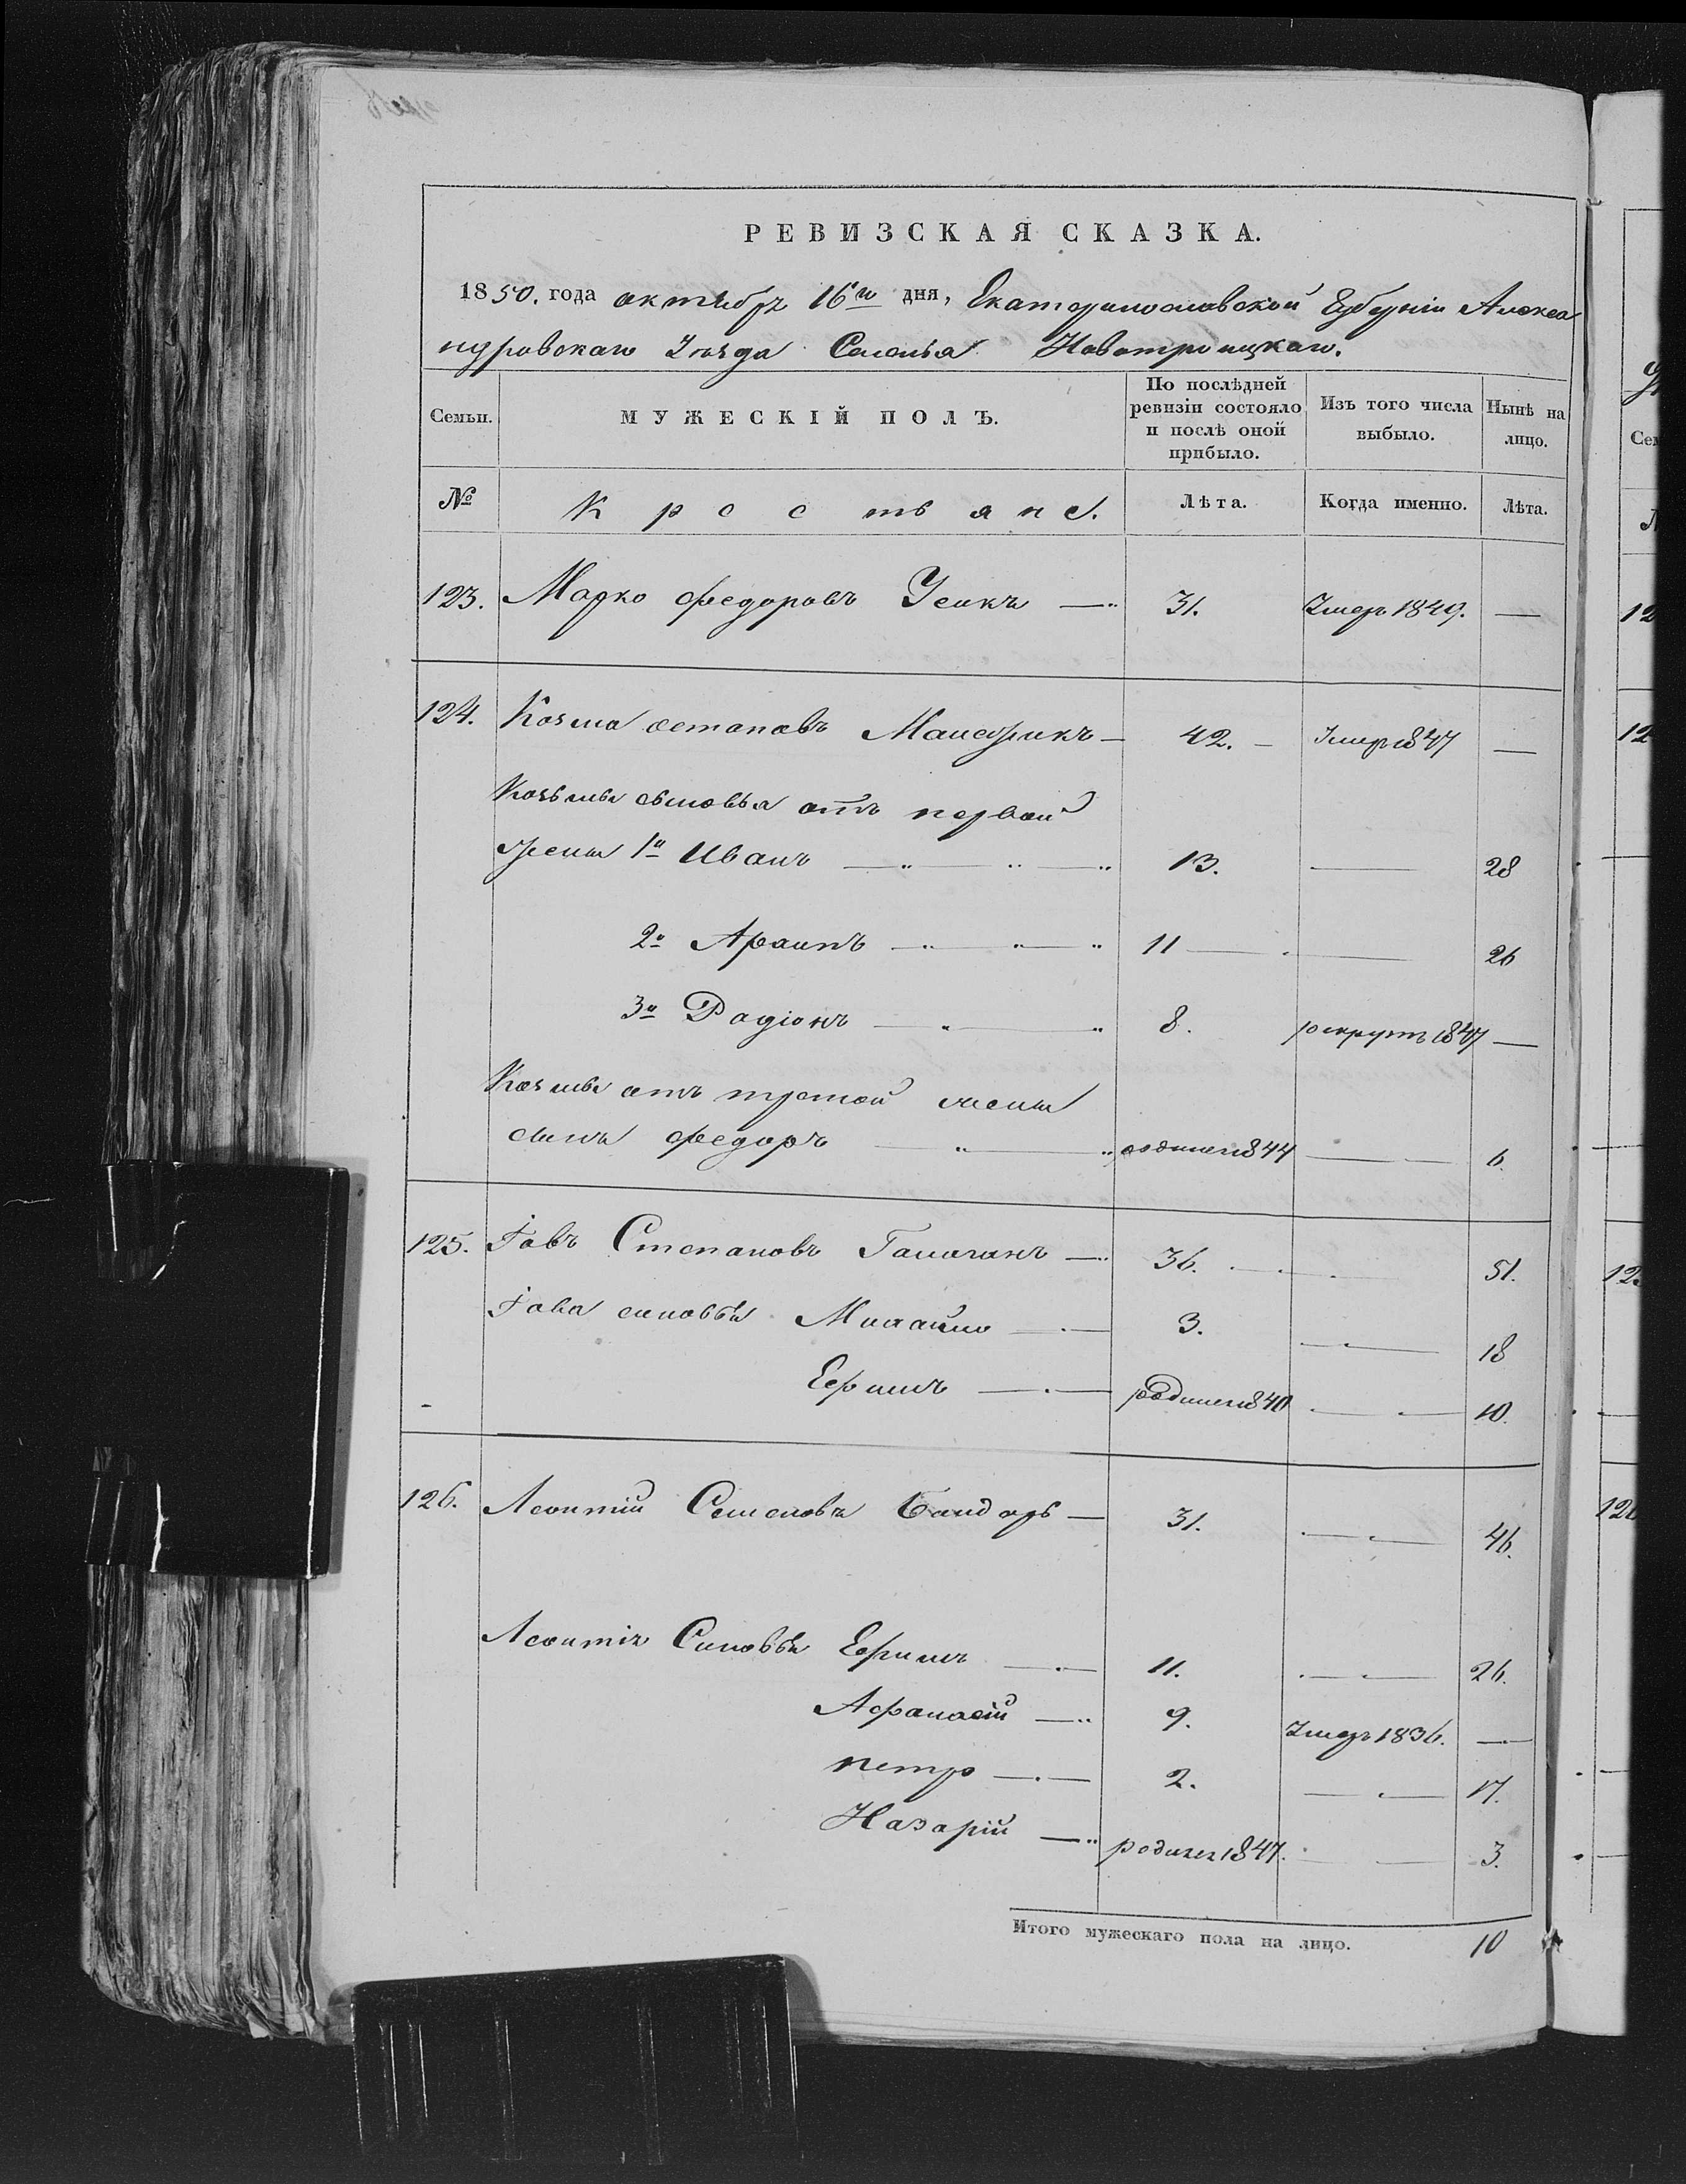 РЕВИЗСКАЯ СКАЗКА.
1850. года октября 16го дня, Екатеринославской Губерніи Алекса
ндровскаго Уѣзда Селенія Новотроицкаго.
Семьи. МУЖЕСКІЙ ПОЛЪ. По послѣдней ревизіи состояло и послѣ оной прибыло. Изъ того числа выбыло. Нынѣ на лицо.
№ Крестьяне. Лѣта. Когда именно. Лѣта.
123. Марко Федоровъ Усикъ 31. Умеръ 1849. —
124. Козма остаповъ 42. Умеръ 1847 —
Козьмы сыновья отъ первой
жены 1й Иванъ 13. — 28
2й 11 — 26
3й Радіонъ 8. рекрутъ 1847 —
Козмы отъ третей жены
сынъ Федоръ родился 1844 — 6.
125. Іовъ Степановъ 36. — 51.
Іова синовья Михайло 3. — 18
Ефимъ родился 1840 — 10.
126. Леонтій Семеновъ Бондарь 31. — 46.
Леонтія Синовья Ефимъ 11. — 26.
Афанасій 9. Умеръ 1836. —
петръ 2. — 17.
Назарій родился 1847. — 3.
Итого мужескаго пола на лицо. 10